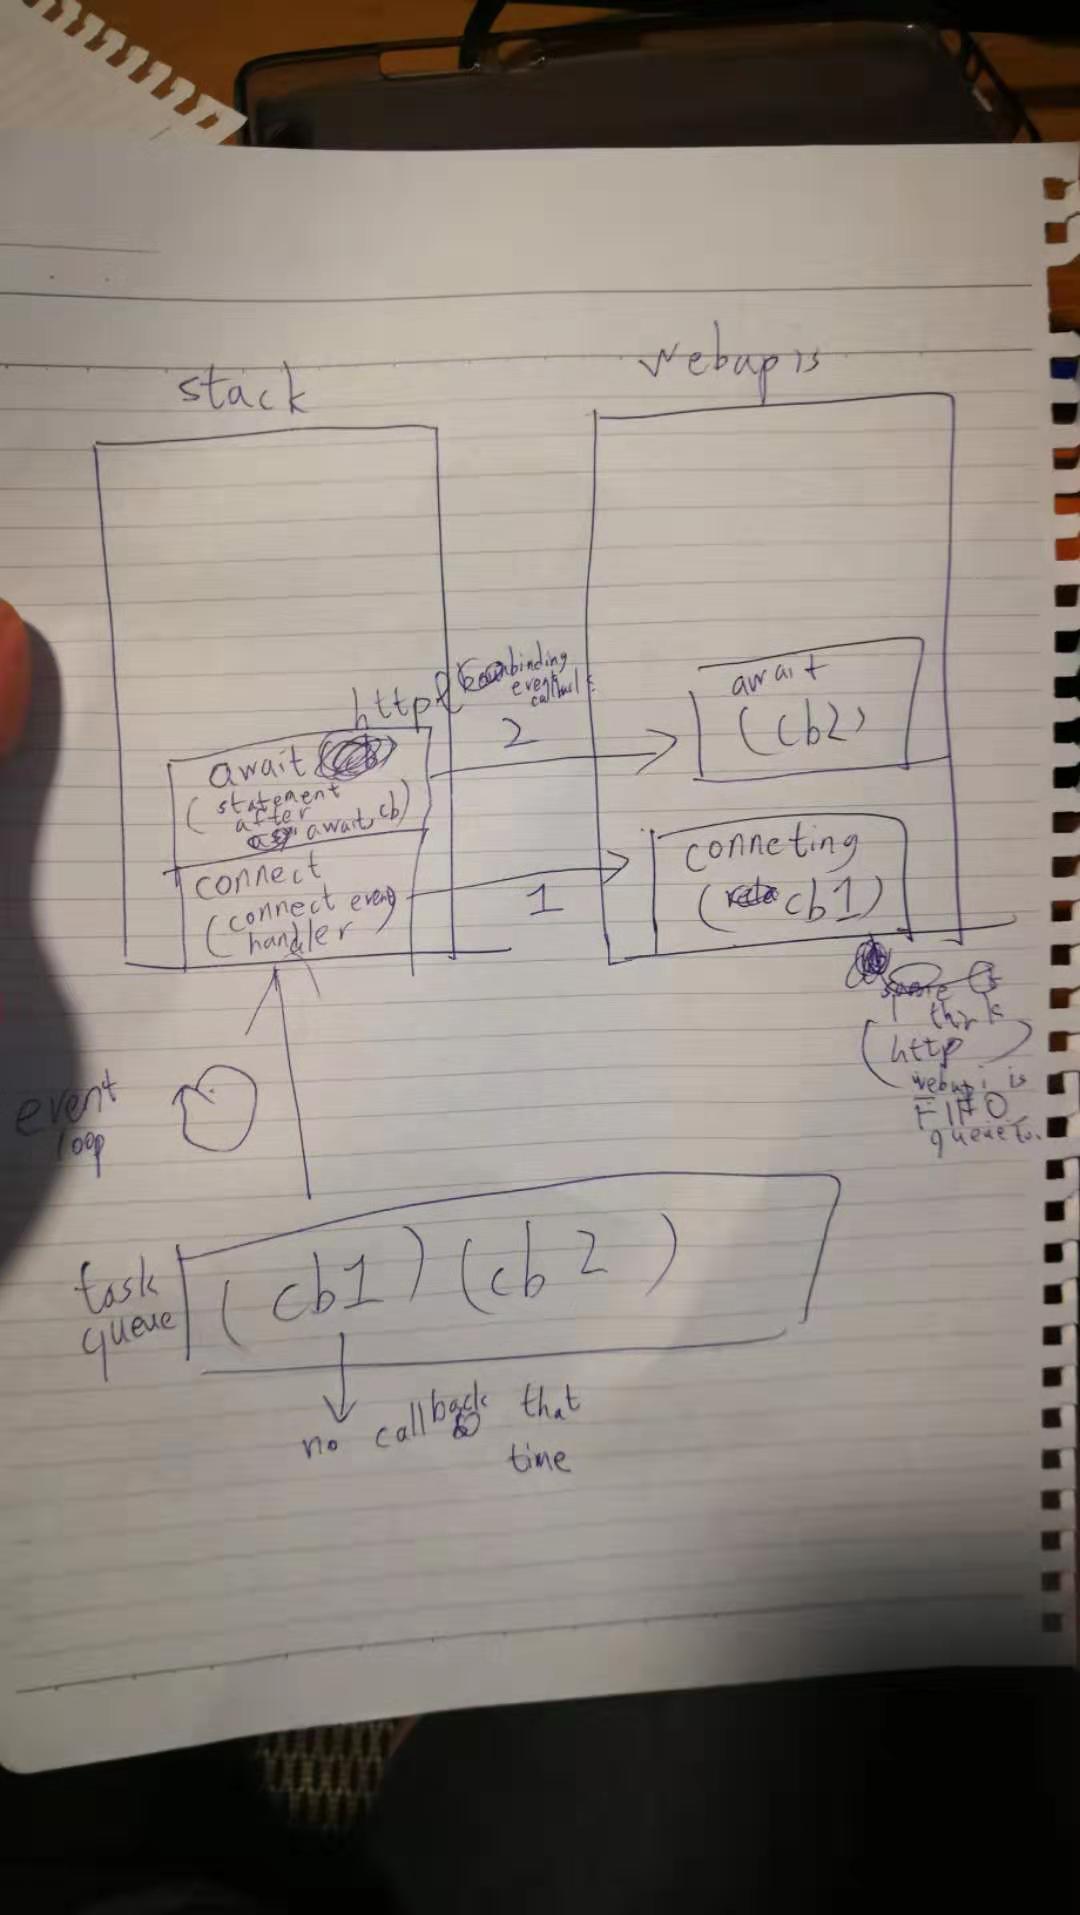 stack
webapis
http
binding
event
callback
2
await
(statement
after
await, cb)
await
(cb2)
connect
(connect event
handler
1
conneting
(cb1)
I think
(http)
webapi is
FIFO
queue to.
event
loop
task
queue
(cb1) (cb2)
no callback that
time